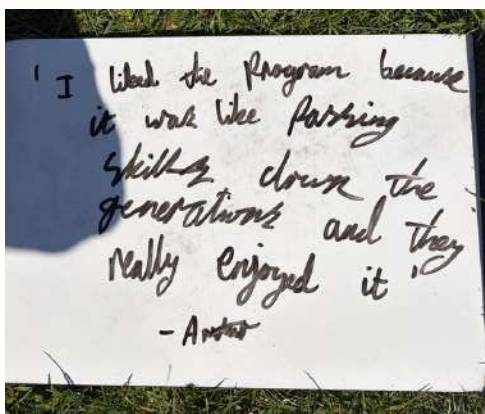 ' I liked the Program because
it was like Passing
skills down the
generations and they
really enjoyed it '
-